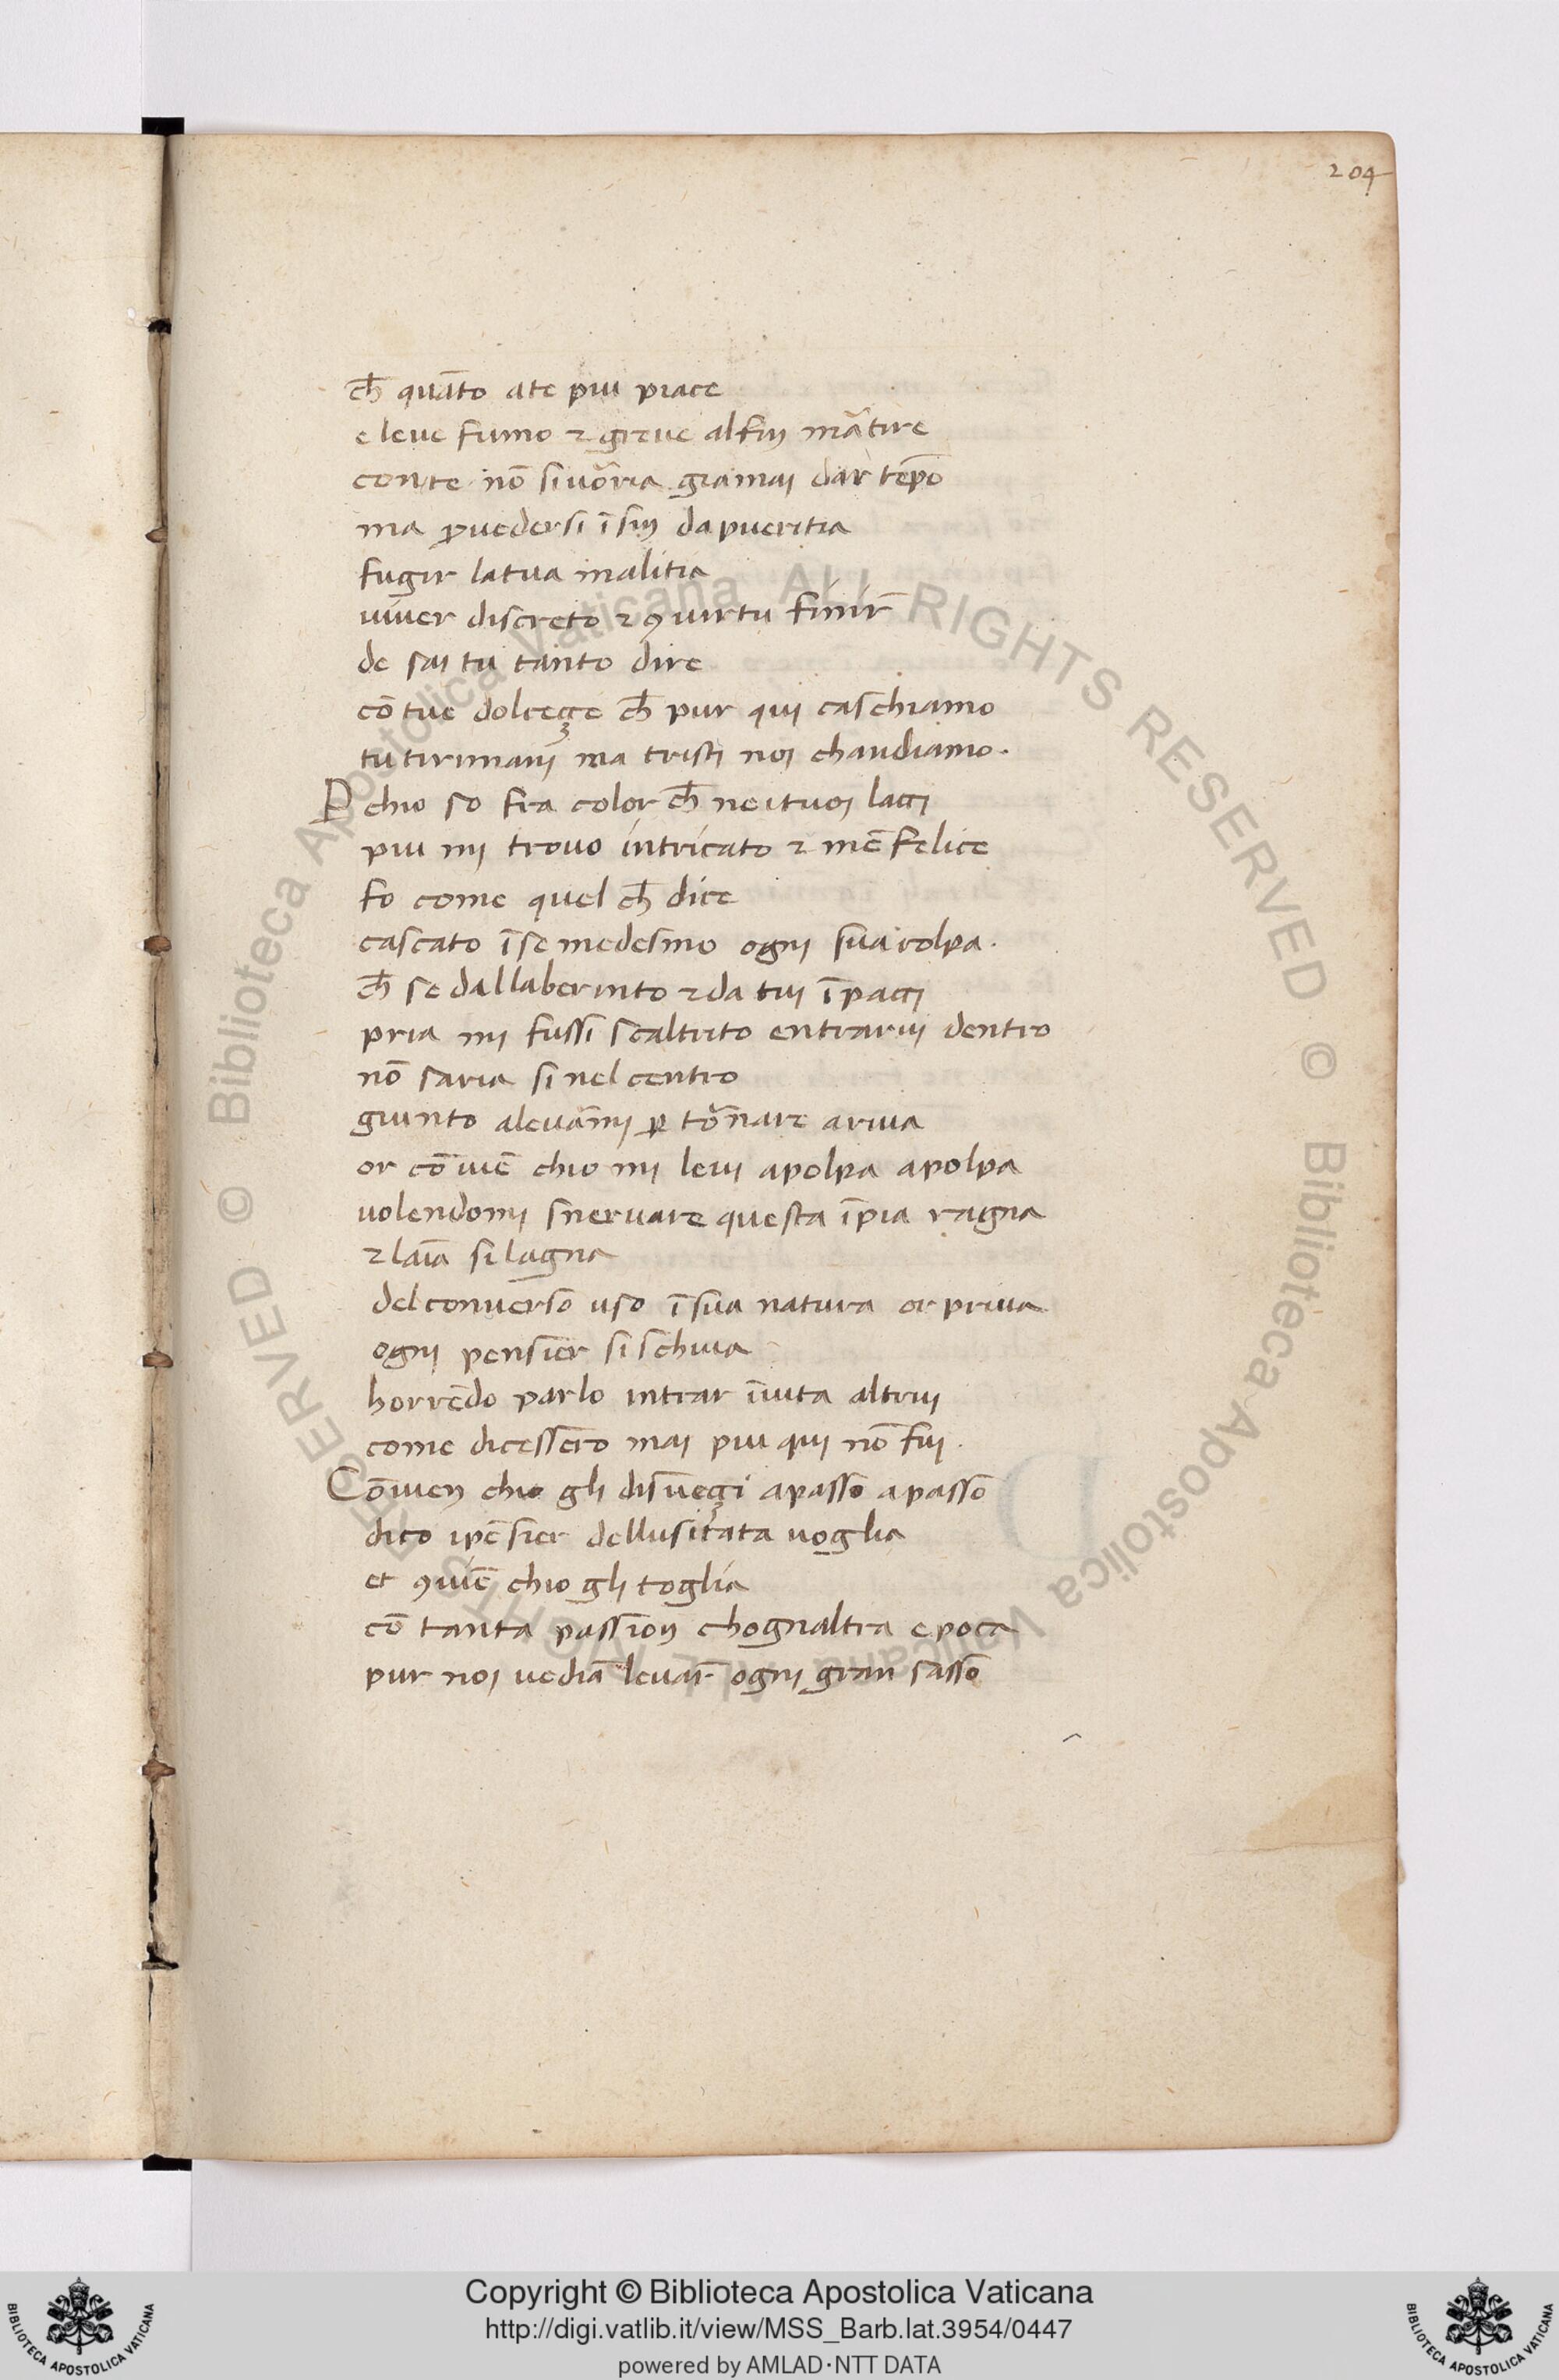 204
ch̄ quāto ate piu piace
e leue fumo ⁊ greue alfin mãtire
conte nō siuõria giamai dar tēpo
ma ꝓuedersi ī sin da pueritia
fugir latua malitia
uiuer discreto ⁊ ꝯ uirtu finir̄
de sai tu tanto dire
cō tue dolceçe ch̄ pur qui caschiamo
tu tirimani ma tristi noi chandiamo.
P chio so fra color ch̄ neituoi lacci
piu mi trouo intricato ⁊ mē felice
fo come quel ch̄ dice
cascato ī se medesmo ogni sua colpa.
ch̄ se dallaberinto ⁊ da tui īpacci
pria mi fussi scaltrito entrarui dentro
nō saria si nel centro
giunto aleuãmi ꝑ tõnare ariua
or cōuiē chio mi leui apolpa apolpa
uolendomi sneruare questa īpia ragna
⁊ laīa si lagna
del conuerso uso ī sua natura or priua
ogni pensier si schiua
horrēdo parlo intrar ī uita altrui
come dicessero mai piu qui nō fui.
Cōuien chio gli disueçi apasso apasso
dico ipēsier dellusitata uoglia
et ꝯuiē chio gli toglia
cō tanta passion chognaltra e poca
pur noi uediā leuar̄ ogni gran sasso
Copyright © Biblioteca Apostolica Vaticana
http://digi.vatlib.it/view/MSS_Barb.lat.3954/0447
powered by AMLAD·NTT DATA
BIBLIOTECA APOSTOLICA VATICANA
BIBLIOTECA APOSTOLICA VATICANA
© Biblioteca Apostolica Vaticana ALL RIGHTS RESERVED
© Biblioteca Apostolica Vaticana ALL RIGHTS RESERVED